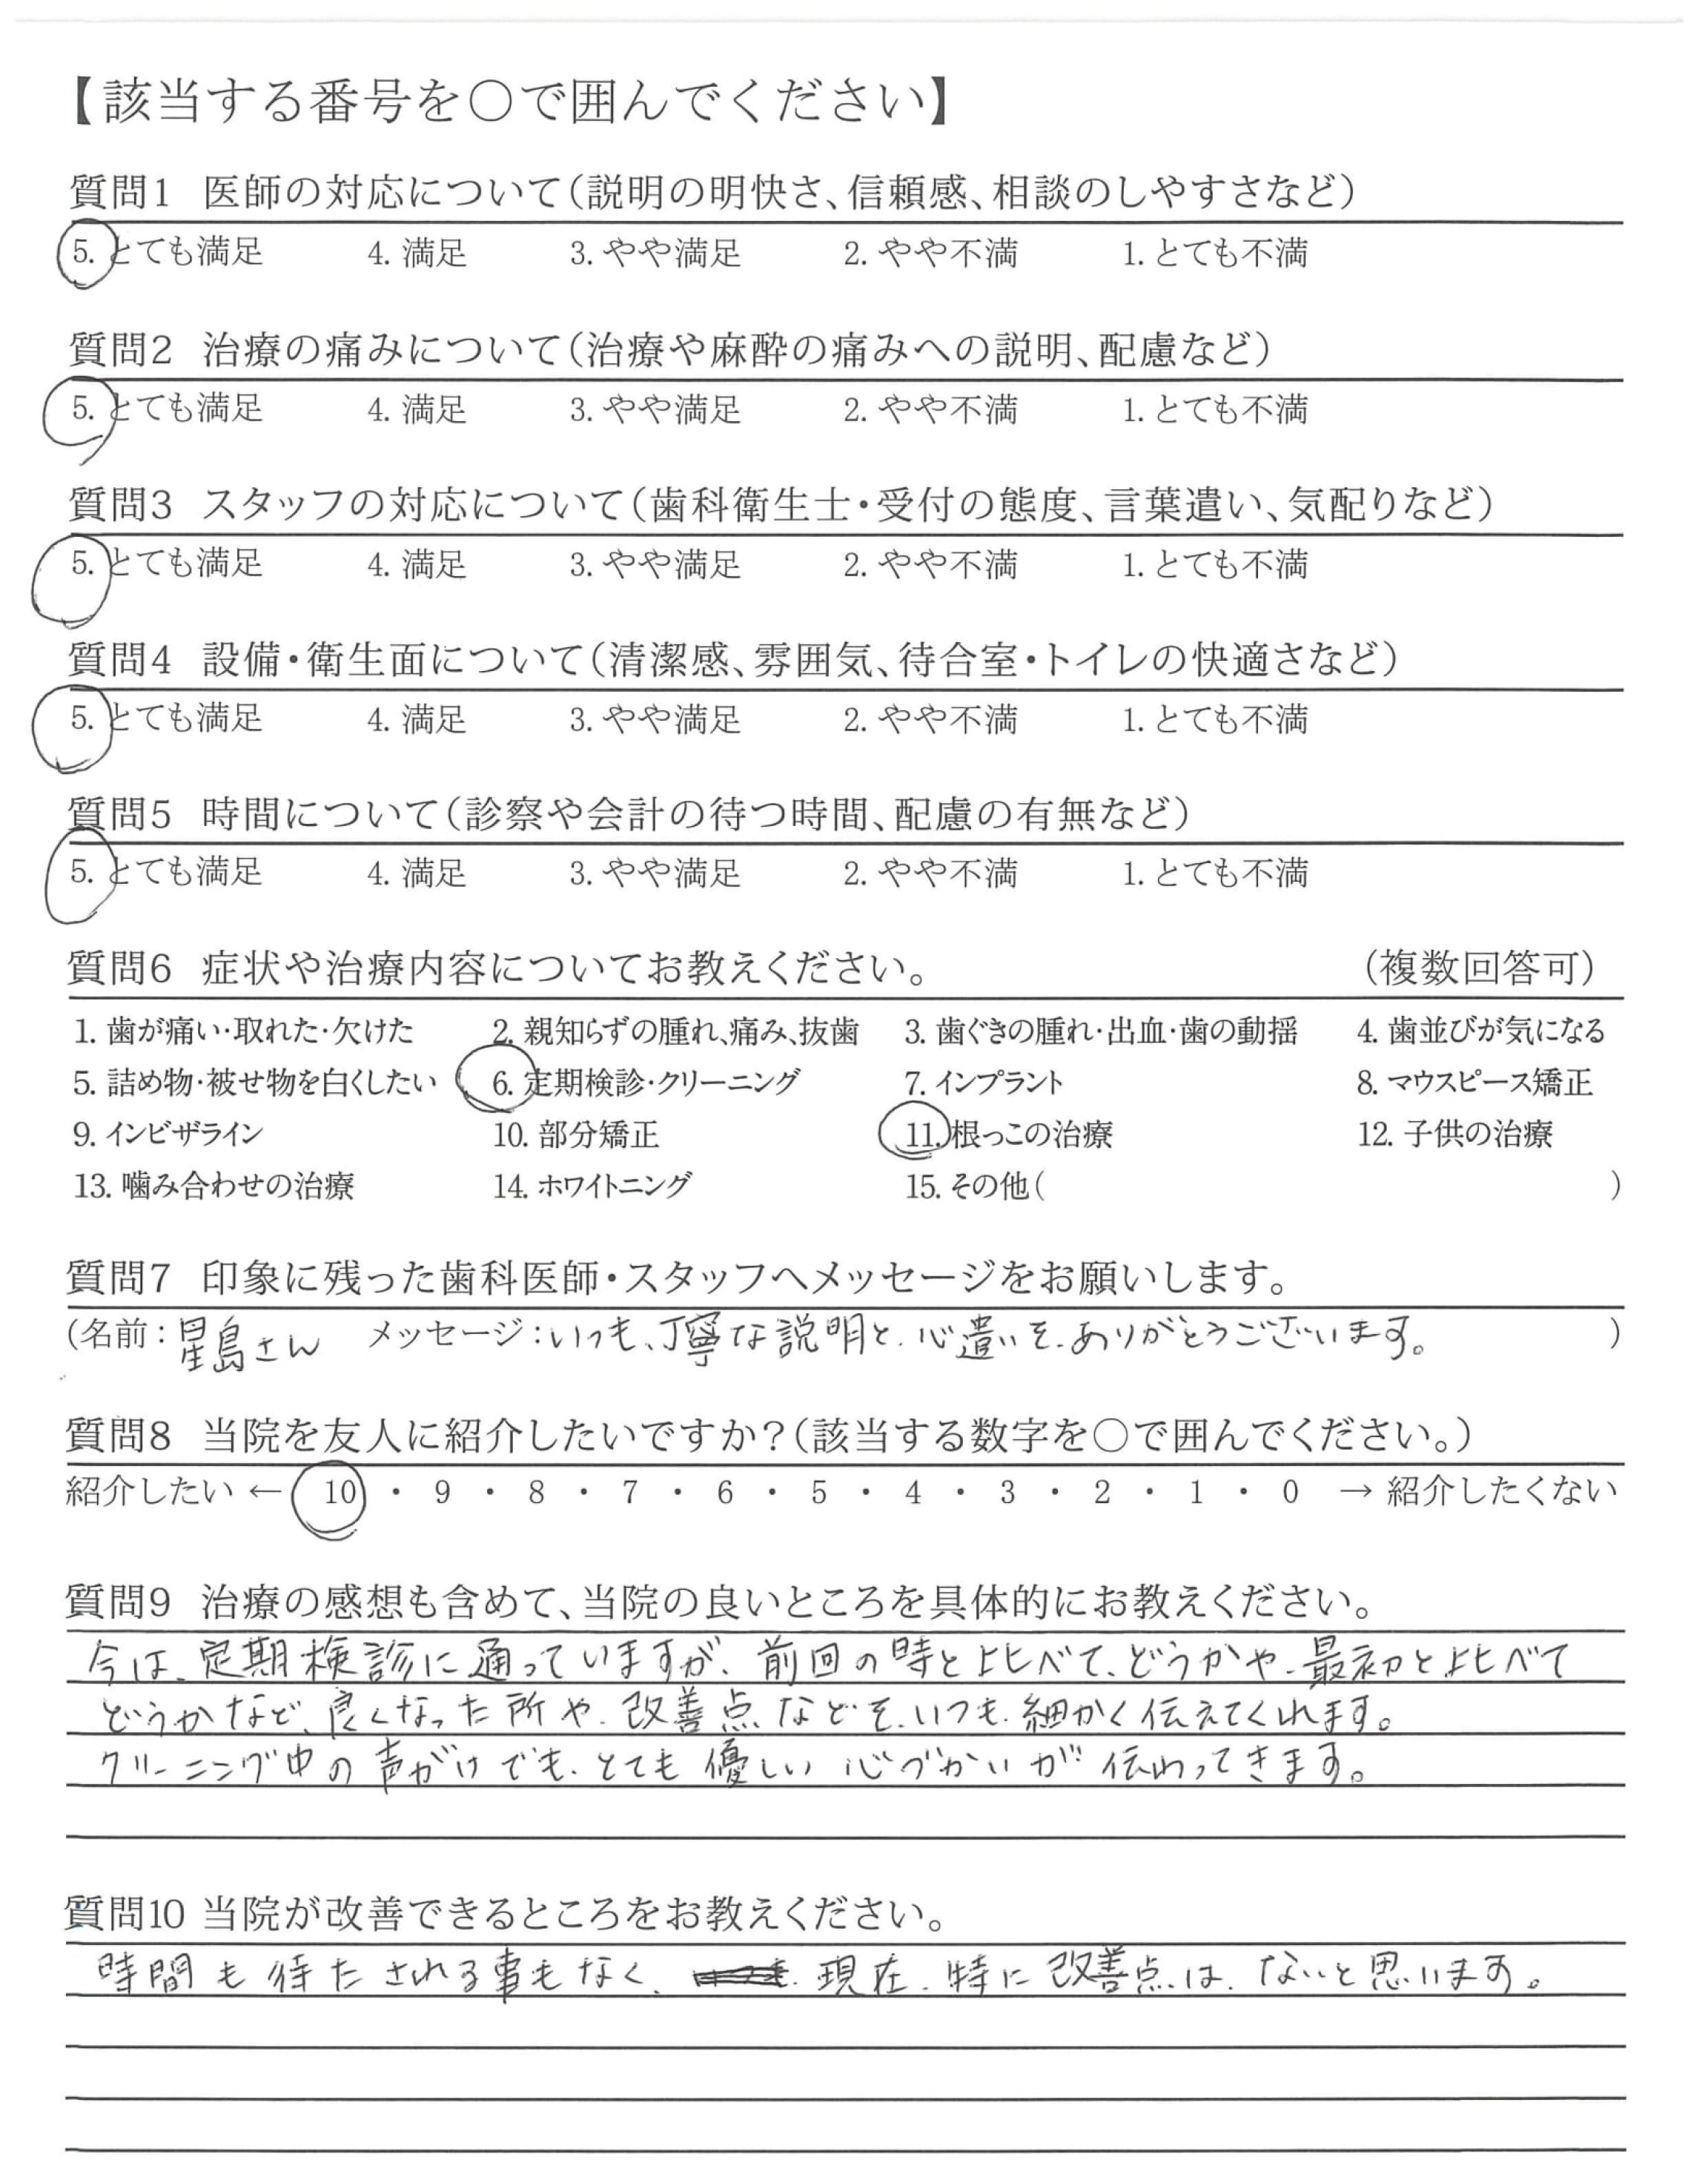 【該当する番号を〇で囲んでください】
質問1 医師の対応について(説明の明快さ、信頼感、相談のしやすさなど)
5. とても満足 4. 満足 3. やや満足 2. やや不満 1. とても不満
質問2 治療の痛みについて(治療や麻酔の痛みへの説明、配慮など)
5. とても満足 4. 満足 3. やや満足 2. やや不満 1. とても不満
質問3 スタッフの対応について(歯科衛生士・受付の態度、言葉遣い、気配りなど)
5. とても満足 4. 満足 3. やや満足 2. やや不満 1. とても不満
質問4 設備・衛生面について(清潔感、雰囲気、待合室・トイレの快適さなど)
5. とても満足 4. 満足 3. やや満足 2. やや不満 1. とても不満
質問5 時間について(診察や会計の待つ時間、配慮の有無など)
5. とても満足 4. 満足 3. やや満足 2. やや不満 1. とても不満
質問6 症状や治療内容についてお教えください。 (複数回答可)
1. 歯が痛い・取れた・欠けた 2. 親知らずの腫れ、痛み、抜歯 3. 歯ぐきの腫れ・出血・歯の動揺 4. 歯並びが気になる
5. 詰め物・被せ物を白くしたい 6. 定期検診・クリーニング 7. インプラント 8. マウスピース矯正
9. インビザライン 10. 部分矯正 11. 根っこの治療 12. 子供の治療
13. 噛み合わせの治療 14. ホワイトニング 15. その他( )
質問7 印象に残った歯科医師・スタッフへメッセージをお願いします。
(名前:星島さん メッセージ:いつも、丁寧な説明と、心遣いを、ありがとうございます。 )
質問8 当院を友人に紹介したいですか?(該当する数字を〇で囲んでください。)
紹介したい ← 10 ・ 9 ・ 8 ・ 7 ・ 6 ・ 5 ・ 4 ・ 3 ・ 2 ・ 1 ・ 0 → 紹介したくない
質問9 治療の感想も含めて、当院の良いところを具体的にお教えください。
今は、定期検診に通っていますが、前回の時と比べて、どうかや、最初と比べて
どうかなど、良くなった所や、改善点などを、いつも、細かく伝えてくれます。
クリーニング中の声がけでも、とても優しい心づかいが伝わってきます。
質問10 当院が改善できるところをお教えください。
時間も待たされる事もなく、現在、特に改善点は、ないと思います。